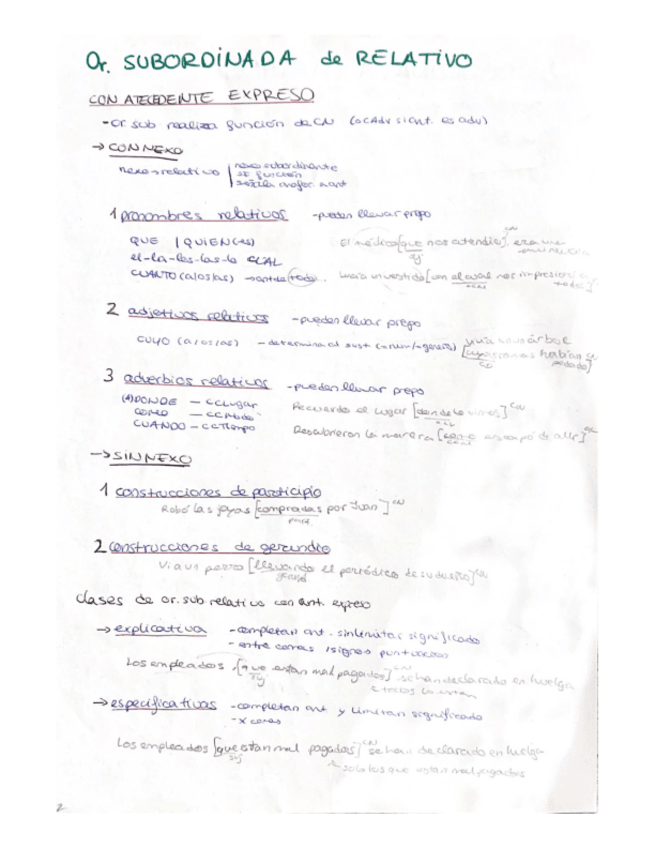 Or. SUBORDINADA de RELATIVO
CON ATECEDENTE EXPRESO
-or. sub realiza función de CN (o CAdv si ant. es adv)
→ CON NEXO
nexo→relativo | nexo subordinante
se función
señala anafór. a ant
1 pronombres relativos -pueden llevar prepo
QUE | QUIEN(ES)
el-la-los-las-lo CUAL
CUANTO (a/os/as) → ant de todo
El médico [que nos atendió], era una CN
sj
Llevaba un vestido [con el cual nos impresionó a todos]
2 adjetivos relativos -pueden llevar prepo
CUYO (a/os/as) - determina al sust (=num/=genero)
[cuyas ramas habían podado]
CD
3 adverbios relativos -pueden llevar prepo
(a)DONDE - CCLugar
COMO - CCModo
CUANDO - CCTiempo
Recuerdo el lugar [donde te vimos] CN
Descubrieron la manera [como escapó de allí] CN
→ SIN NEXO
1 construcciones de participio
Robó las joyas [compradas por Juan] CN
part.
2 construcciones de gerundio
Vi a un perro [llevando el periódico de su dueño] CN
gerund
clases de or. sub relativo con ant. expreso
→ explicativa - completan ant. sin limitar significado
- entre comas /signos puntuación
Los empleados, [que están mal pagados] CN se han declarado en huelga
sj
→ especificativas - completan ant y limitan significado
- x comas
Los empleados [que estan mal pagados] CN se han declarado en huelga
sj
solo los que estan mal pagados
2